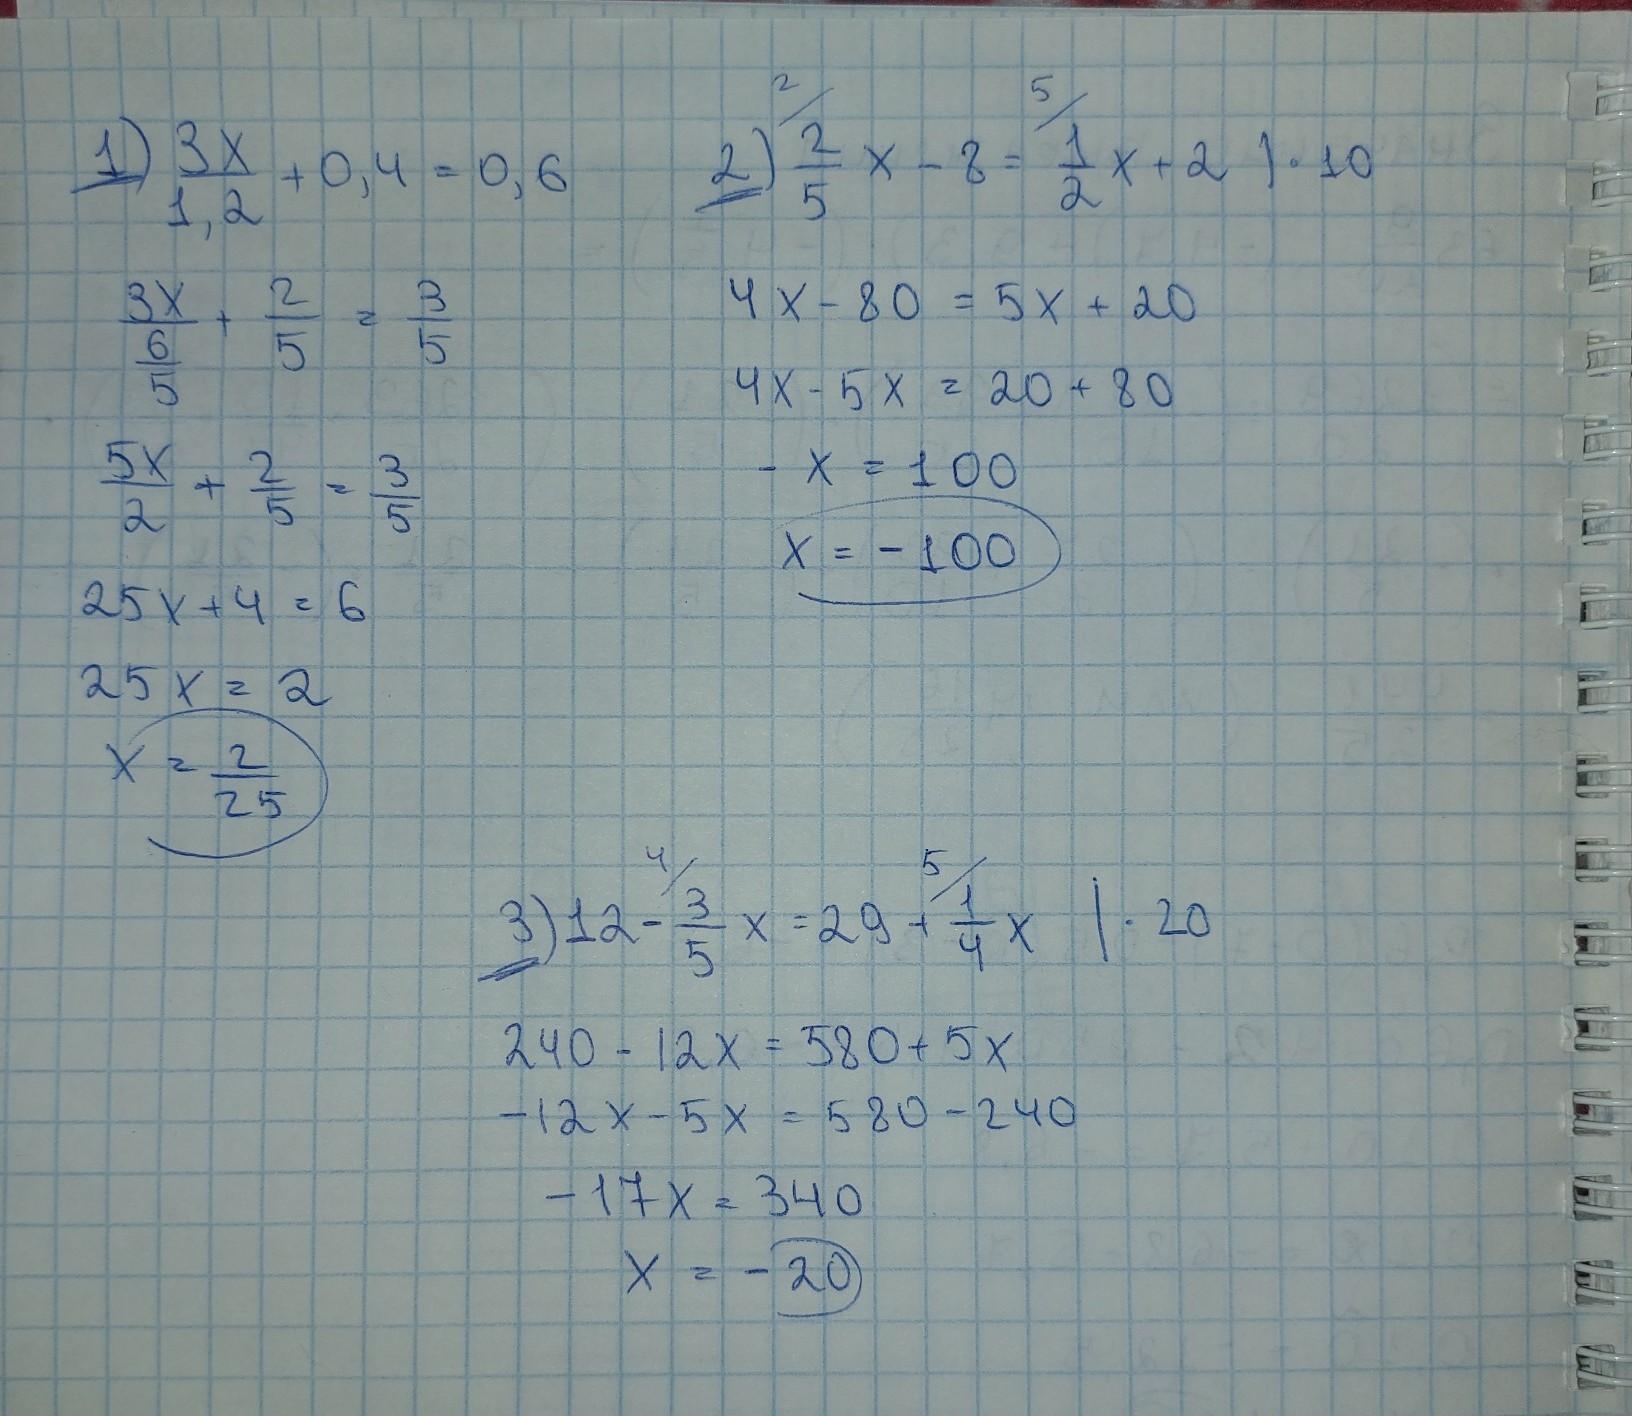 1) 3x/1,2 + 0,4 = 0,6
3x/(6/5) + 2/5 = 3/5
5x/2 + 2/5 = 3/5
25x + 4 = 6
25x = 2
x = 2/25
2) 2/ 2/5 x - 8 = 5/ 1/2 x + 2 | · 10
4x - 80 = 5x + 20
4x - 5x = 20 + 80
- x = 100
x = -100
3) 12 - 4/ 3/5 x = 29 + 5/ 1/4 x | · 20
240 - 12x = 580 + 5x
-12x - 5x = 580 - 240
-17x = 340
x = -20